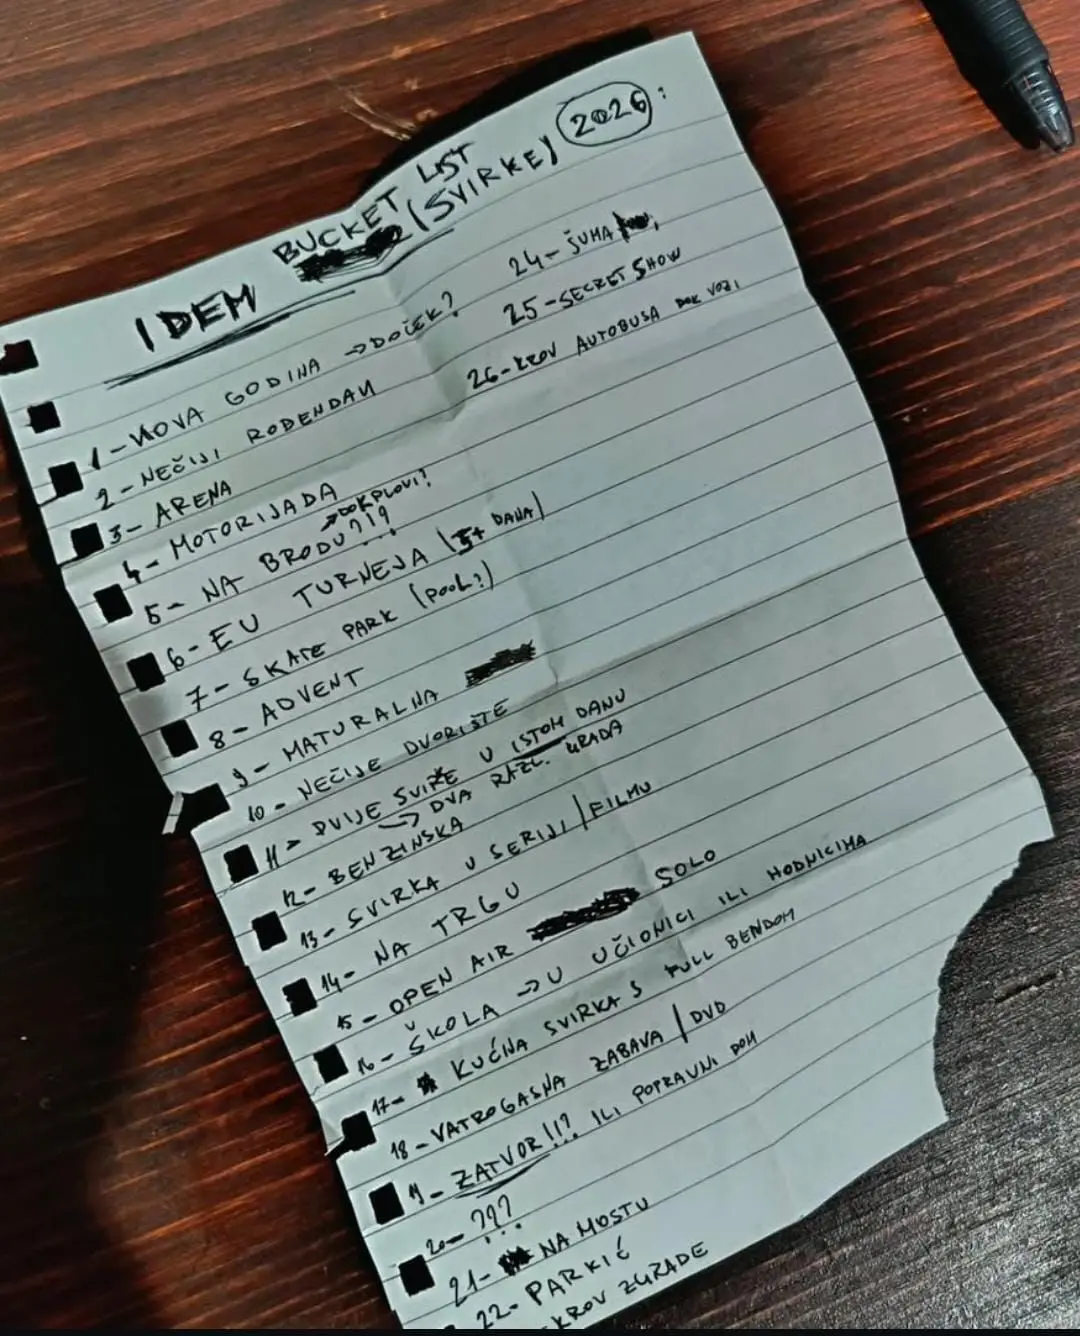 IDEM BUCKET LIST (SVIRKE) 2026:
1 - NOVA GODINA → DOČEK?
2 - NEČIJI ROĐENDAN
3 - ARENA
4 - MOTORIJADA
5 - NA BRODU?!? → DOK PLOVI?
6 - EU TURNEJA (5+ DANA)
7 - SKATE PARK (POOL?)
8 - ADVENT
9 - MATURALNA
10 - NEČIJE DVORIŠTE
11 - DVIJE SVIRKE U ISTOM DANU
→ DVA RAZL. GRADA
12 - BENZINSKA
13 - SVIRKA U SERIJI / FILMU
14 - NA TRGU
15 - OPEN AIR SOLO
16 - ŠKOLA → U UČIONICI ILI HODNICIMA
17 - KUĆNA SVIRKA S FULL BENDOM
18 - VATROGASNA ZABAVA / DVD
19 - ZATVOR!!? ILI POPRAVNI DOM
20 - ???
21 - NA MOSTU
22 - PARKIĆ
- KROV ZGRADE
24 - ŠUMA
25 - SECRET SHOW
26 - KROV AUTOBUSA DOK VOZI